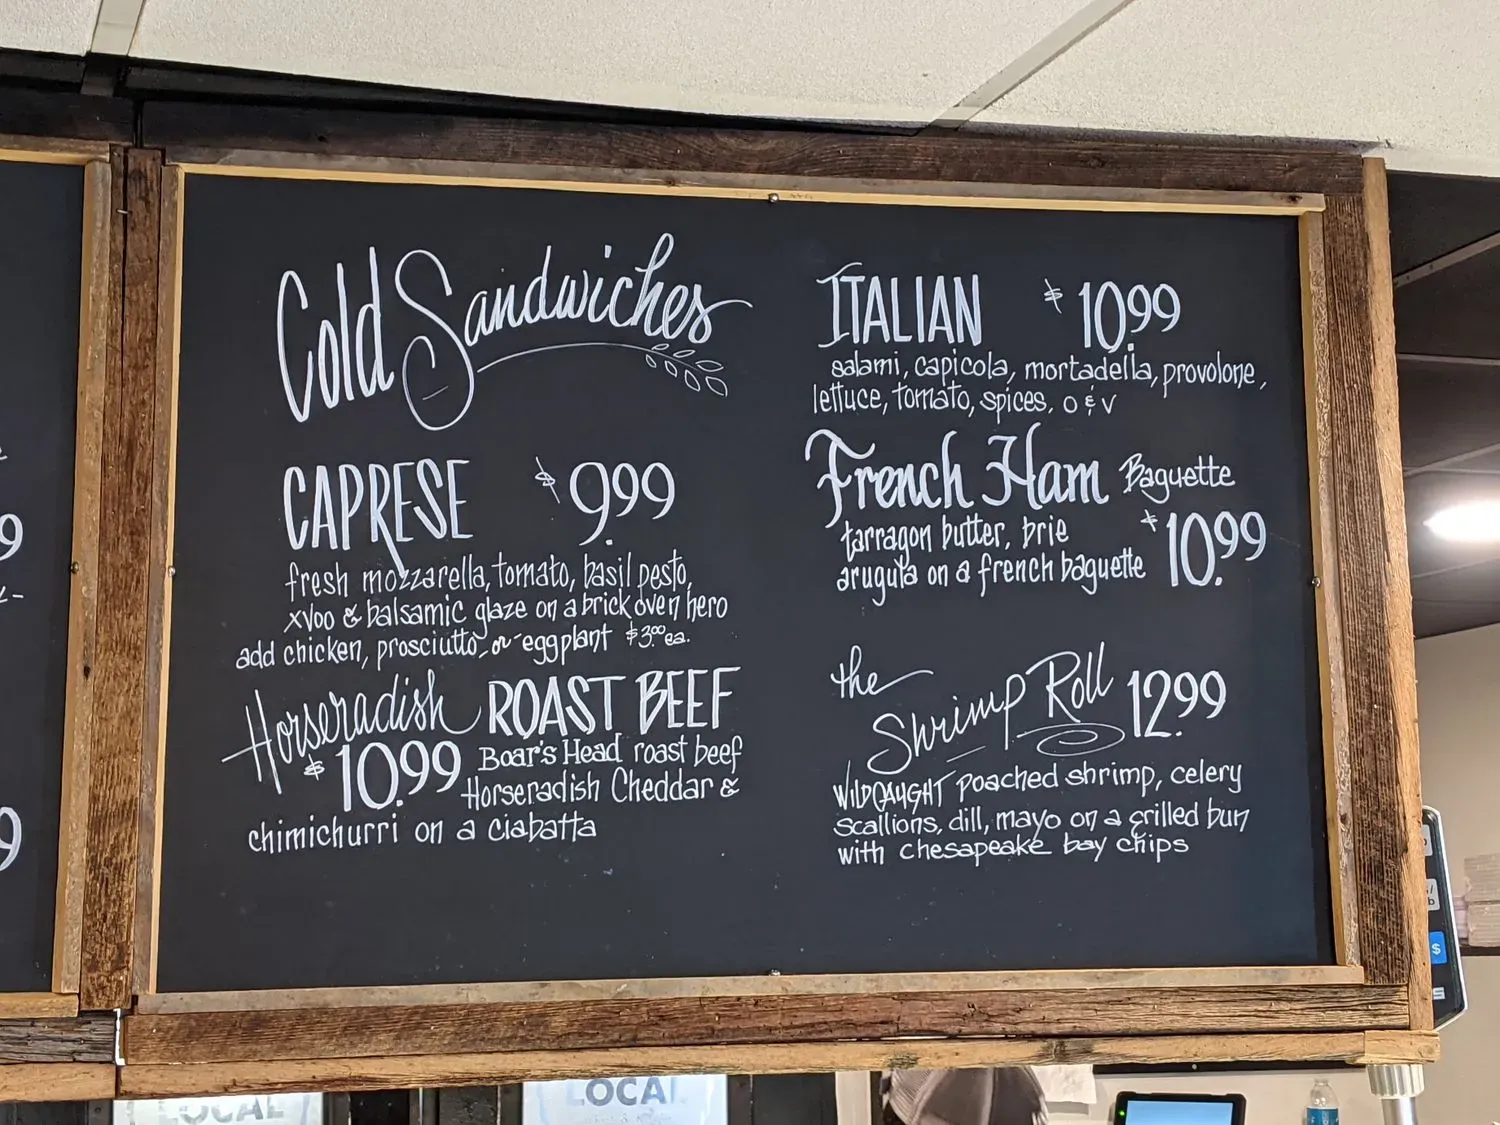 Cold Sandwiches
CAPRESE $9.99
fresh mozzarella, tomato, basil pesto,
xvoo & balsamic glaze on a brick oven hero
add chicken, prosciutto, or eggplant $3.00 ea.
Horseradish ROAST BEEF
$10.99 Boar's Head roast beef
Horseradish Cheddar &
chimichurri on a ciabatta
ITALIAN $10.99
salami, capicola, mortadella, provolone,
lettuce, tomato, spices, o & v
French Ham Baguette
tarragon butter, brie $10.99
arugula on a french baguette
the
Shrimp Roll 12.99
WILD CAUGHT poached shrimp, celery
scallions, dill, mayo on a grilled bun
with chesapeake bay chips
LOCAL
LOCAL